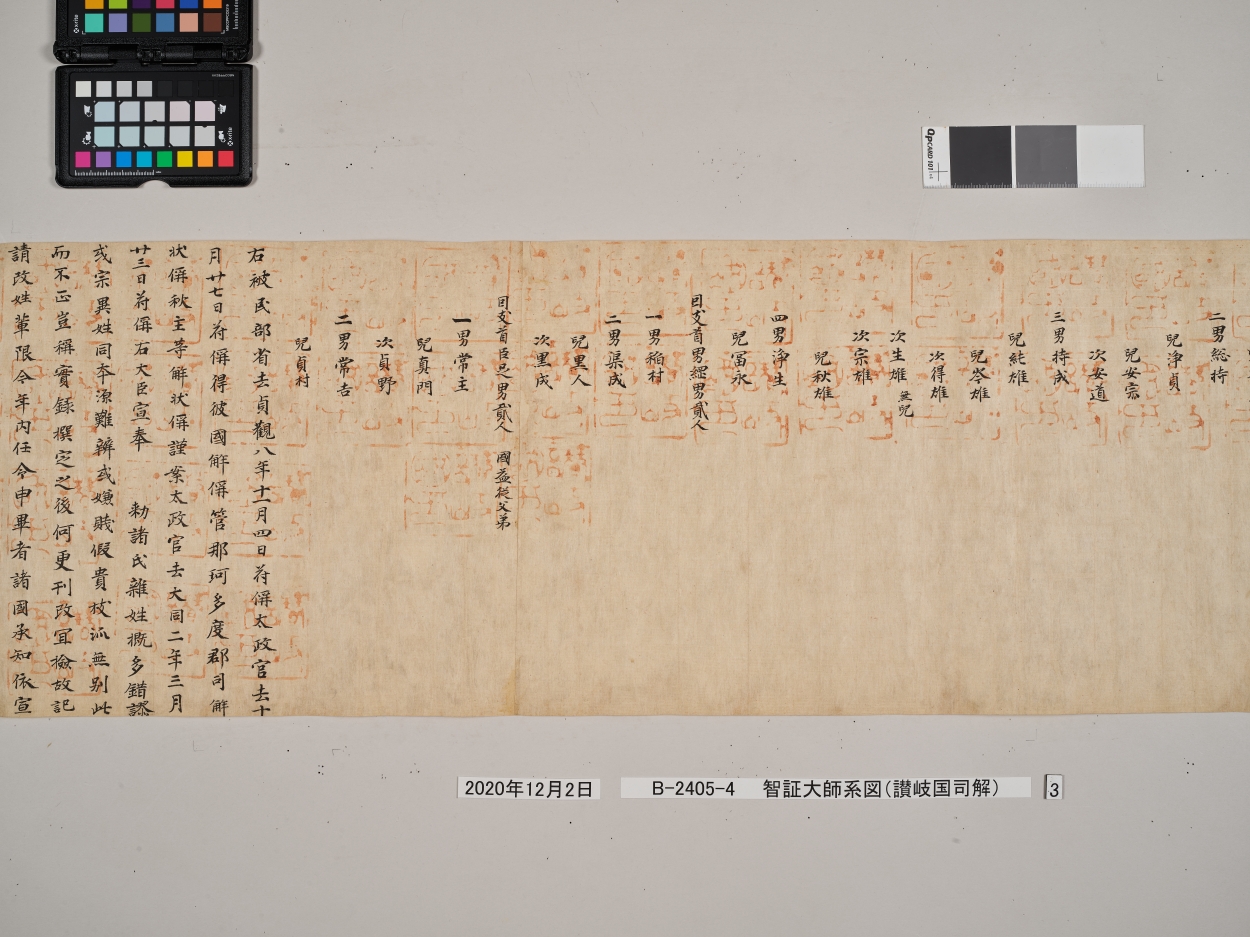 二男総持
兒淨貞
兒安宗
次安道
三男持成
兒純雄
兒岑雄
次得雄
次生雄 無兒
次宗雄
兒秋雄
四男浄生
兒冨永
國益首男
一男稲村
二男渠成
兒黒人
次黒成
男貳人 國益従父弟
一男常主
兒真門
次貞野
二男常吉
兒貞村
右被民部省去貞觀八年十一月四日苻偁太政官去十
月廿七日苻偁得彼國解偁管那珂多度郡司解
状偁秋主等解状偁謹案太政官去大同二年三月
廿三日苻偁右大臣宣奉 勅諸氏雜姓概多錯謬
或宗異姓同本源難辨或嫌賎假貴枝泒無别此
而不正豈稱實録撰定之後何更刊改宜撿故記
請改姓輩限今年内任令申畢者諸國承知依宣
2020年12月2日
B-2405-4 智証大師系図(讃岐国司解)
3
QPCARD 101
x-rite